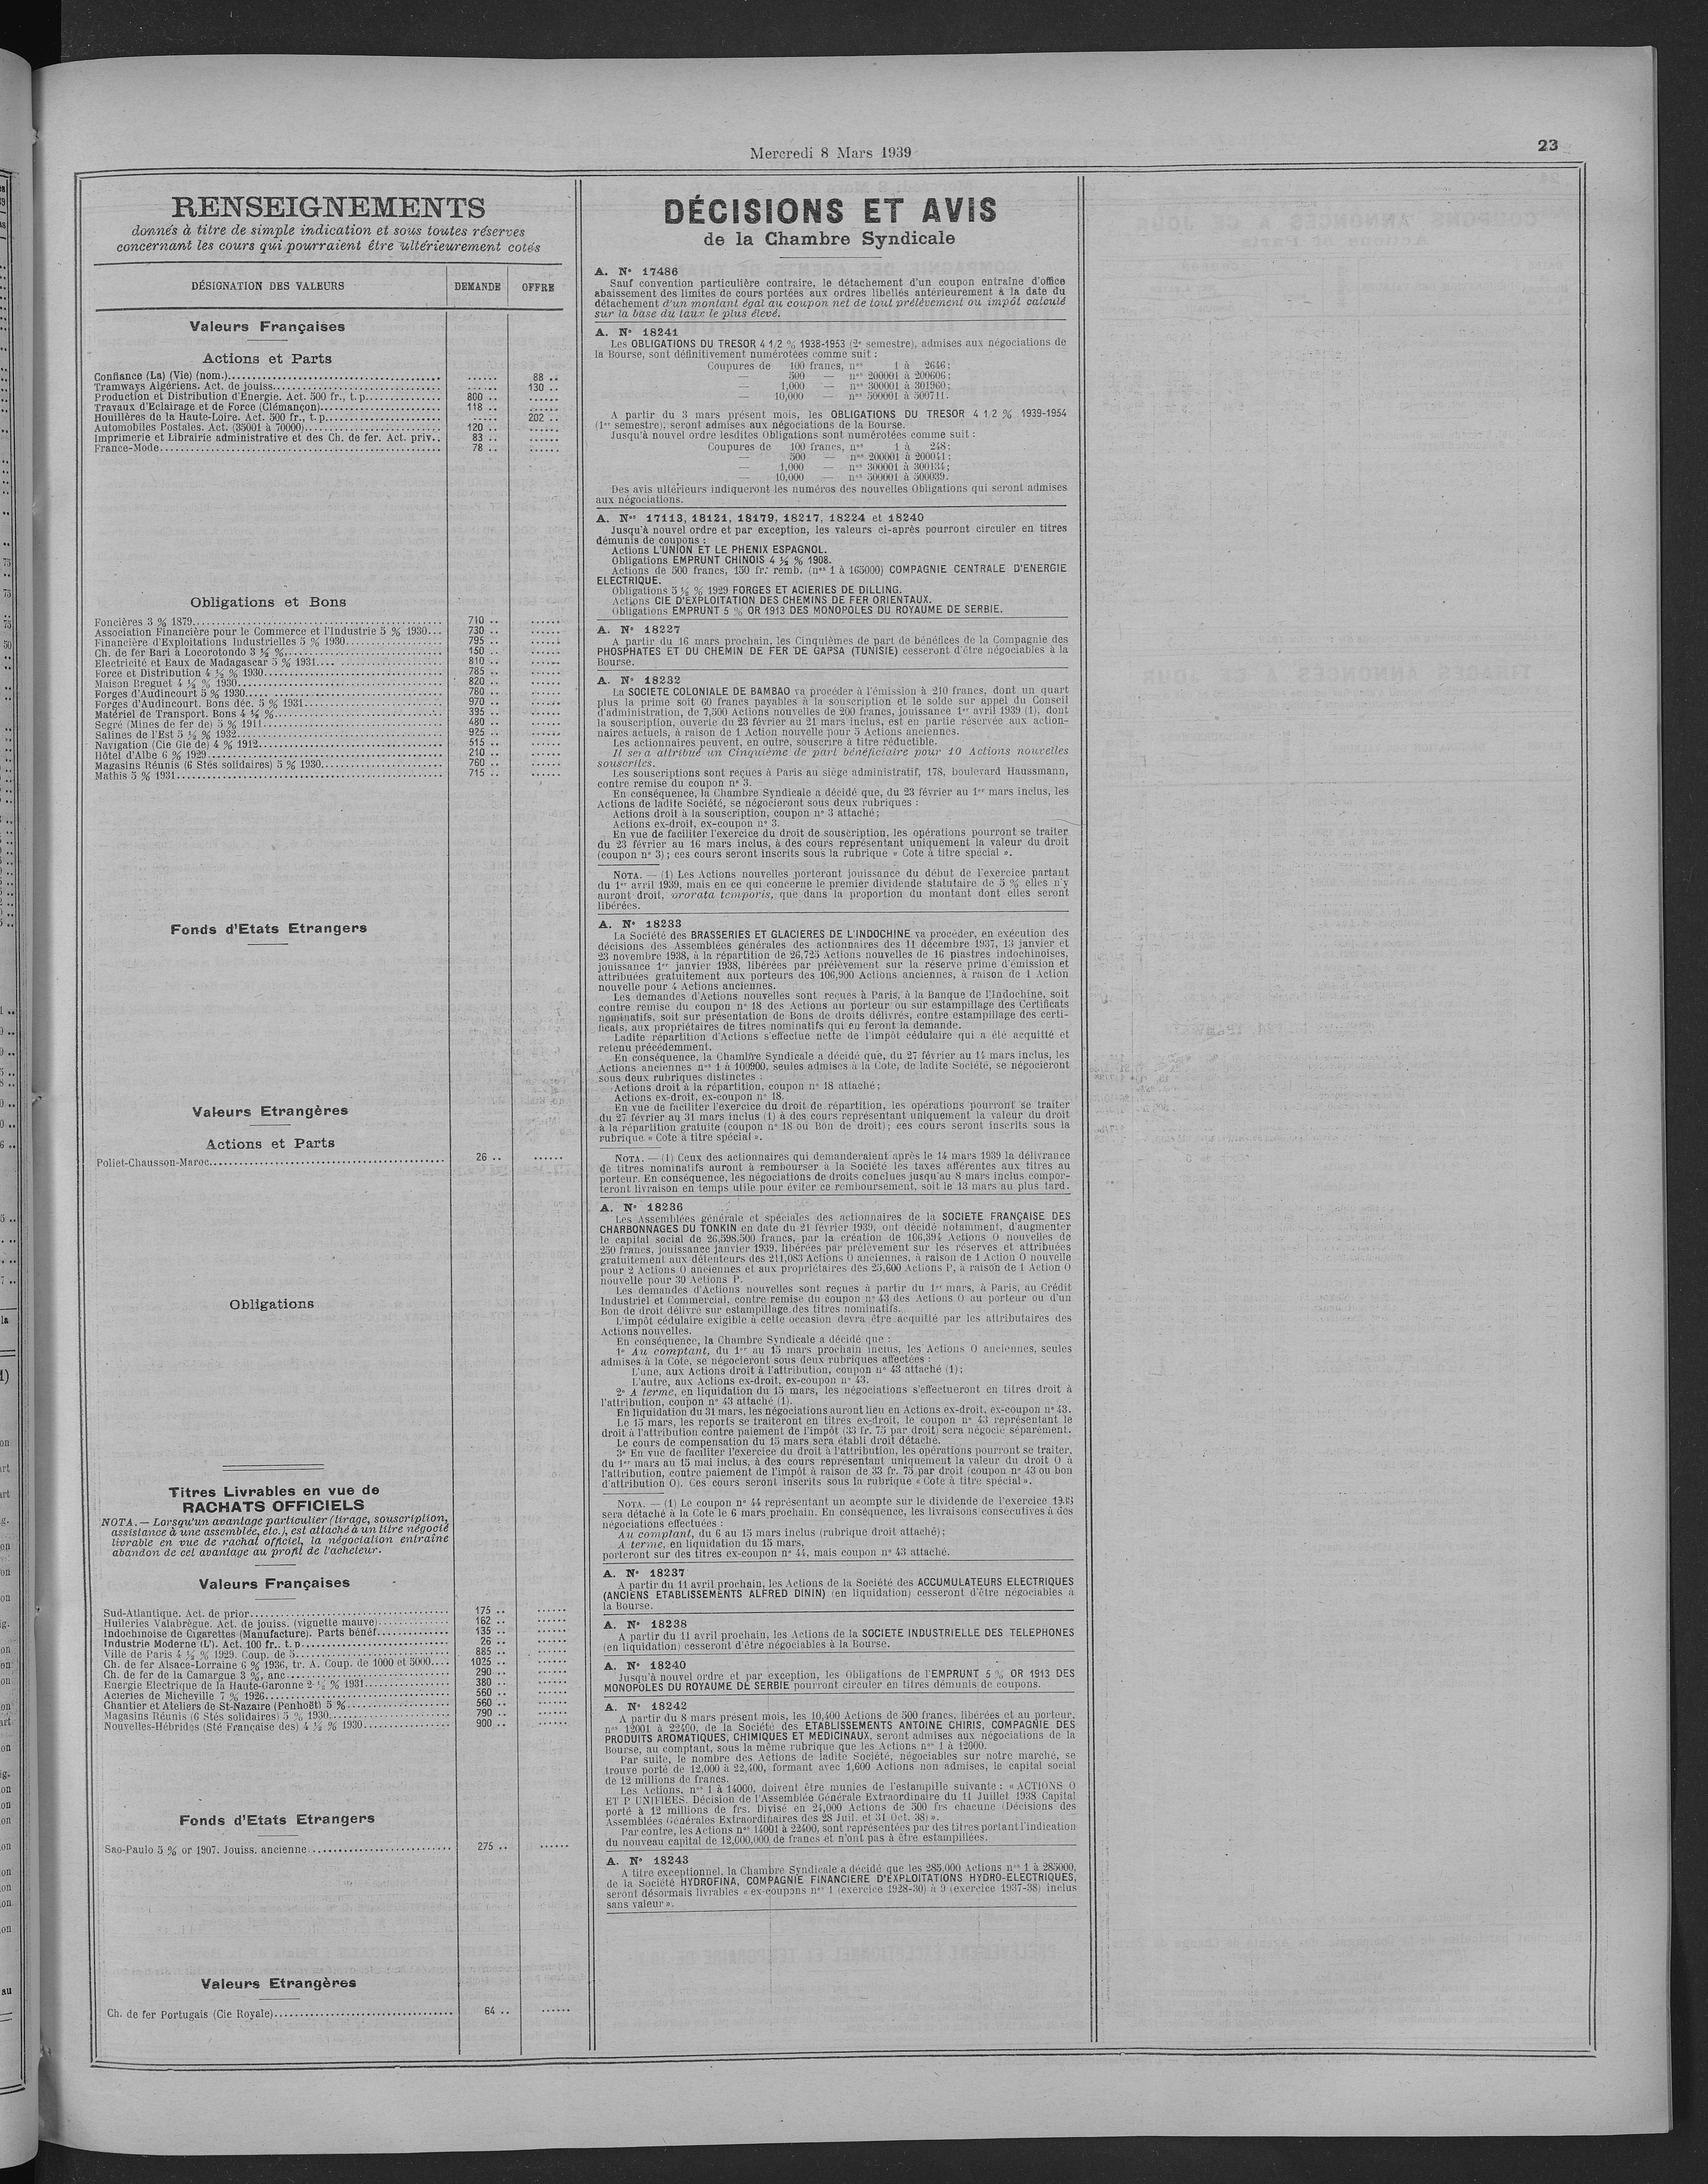 Mercredi 8 Mars 1939
23
RENSEIGNEMENTS
donnés à titre de simple indication et sous toutes réserves
concernant les cours qui pourraient être ultérieurement cotés
DÉSIGNATION DES VALEURS DEMANDE OFFRE
Valeurs Françaises
Actions et Parts
Confiance (La) (Vie) (nom.) ...... 88 ..
Tramways Algériens. Act. de jouiss. ...... 130 ..
Production et Distribution d'Énergie. Act. 500 fr., t. p. 800 .. ......
Travaux d'Eclairage et de Force (Clémançon) 118 .. ......
Houillères de la Haute-Loire. Act. 500 fr., t. p. ...... 202 ..
Automobiles Postales. Act. (35001 à 70000) 120 .. ......
Imprimerie et Librairie administrative et des Ch. de fer. Act. priv. 83 .. ......
France-Mode 78 .. ......
Obligations et Bons
Foncières 3 % 1879 710 .. ......
Association Financière pour le Commerce et l'Industrie 5 % 1930 730 .. ......
Financière d'Exploitations Industrielles 5 % 1930 795 .. ......
Ch. de fer Bari à Locorotondo 3 ½ % 150 .. ......
Electricité et Eaux de Madagascar 5 % 1931 810 .. ......
Force et Distribution 4 ½ % 1930 785 .. ......
Maison Breguet 4 ½ % 1930 820 .. ......
Forges d'Audincourt 5 % 1930 780 .. ......
Forges d'Audincourt. Bons déc. 5 % 1931 970 .. ......
Matériel de Transport. Bons 4 ½ % 395 .. ......
Segré (Mines de fer de) 5 % 1911 480 .. ......
Salines de l'Est 5 ½ % 1932 925 .. ......
Navigation (Cie Gle de) 4 % 1912 515 .. ......
Hôtel d'Albe 6 % 1929 210 .. ......
Magasins Réunis (6 Stés solidaires) 5 % 1930 760 .. ......
Mathis 5 % 1931 715 .. ......
Fonds d'Etats Etrangers
Valeurs Etrangères
Actions et Parts
Poliet-Chausson-Maroc 26 .. ......
Obligations
Titres Livrables en vue de
RACHATS OFFICIELS
NOTA. — Lorsqu'un avantage particulier (tirage, souscription,
assistance à une assemblée, etc.), est attaché à un titre négocié
livrable en vue de rachat officiel, la négociation entraîne
abandon de cet avantage au profit de l'acheteur.
Valeurs Françaises
Sud-Atlantique. Act. de prior. 175 .. ......
Huileries Valabrègue. Act. de jouiss. (vignette mauve) 162 .. ......
Indochinoise de Cigarettes (Manufacture). Parts bénéf. 135 .. ......
Industrie Moderne (L'). Act. 100 fr., t. p. 26 .. ......
Ville de Paris 4 ½ % 1929. Coup. de 5 885 .. ......
Ch. de fer Alsace-Lorraine 6 % 1936, tr. A. Coup. de 1000 et 5000 1025 .. ......
Ch. de fer de la Camargue 3 %, anc. 290 .. ......
Energie Electrique de la Haute-Garonne 2 ½ % 1931 380 .. ......
Aciéries de Micheville 7 % 1926 560 .. ......
Chantier et Ateliers de St-Nazaire (Penhoët) 5 % 560 .. ......
Magasins Réunis (6 Stés solidaires) 5 % 1930 790 .. ......
Nouvelles-Hébrides (Sté Française des) 4 ½ % 1930 900 .. ......
Fonds d'Etats Etrangers
Sao-Paulo 5 % or 1907. Jouiss. ancienne 275 .. ......
Valeurs Etrangères
Ch. de fer Portugais (Cie Royale) 64 .. ......
DÉCISIONS ET AVIS
de la Chambre Syndicale
A. N° 17486
Sauf convention particulière contraire, le détachement d'un coupon entraîne d'office
abaissement des limites de cours portées aux ordres libellés antérieurement à la date du
détachement d'un montant égal au coupon net de tout prélèvement ou impôt calculé
sur la base du taux le plus élevé.
A. N° 18241
Les OBLIGATIONS DU TRESOR 4 1/2 % 1938-1953 (2e semestre), admises aux négociations de
la Bourse, sont définitivement numérotées comme suit :
Coupures de 100 francs, nos 1 à 2646;
— 500 — nos 200001 à 200606;
— 1,000 — nos 300001 à 301960;
— 10,000 — nos 500001 à 500711.
A partir du 3 mars présent mois, les OBLIGATIONS DU TRESOR 4 1/2 % 1939-1954
(1er semestre), seront admises aux négociations de la Bourse.
Jusqu'à nouvel ordre lesdites Obligations sont numérotées comme suit :
Coupures de 100 francs, nos 1 à 248;
— 500 — nos 200001 à 200041;
— 1,000 — nos 300001 à 300134;
— 10,000 — nos 500001 à 500039.
Des avis ultérieurs indiqueront les numéros des nouvelles Obligations qui seront admises
aux négociations.
A. Nos 17113, 18121, 18179, 18217, 18224 et 18240
Jusqu'à nouvel ordre et par exception, les valeurs ci-après pourront circuler en titres
démunis de coupons :
Actions L'UNION ET LE PHENIX ESPAGNOL.
Obligations EMPRUNT CHINOIS 4 ½ % 1908.
Actions de 500 francs, 150 fr. remb. (nos 1 à 165000) COMPAGNIE CENTRALE D'ENERGIE
ELECTRIQUE.
Obligations 5 ½ % 1929 FORGES ET ACIERIES DE DILLING.
Actions CIE D'EXPLOITATION DES CHEMINS DE FER ORIENTAUX.
Obligations EMPRUNT 5 % OR 1913 DES MONOPOLES DU ROYAUME DE SERBIE.
A. N° 18227
A partir du 16 mars prochain, les Cinquièmes de part de bénéfices de la Compagnie des
PHOSPHATES ET DU CHEMIN DE FER DE GAFSA (TUNISIE) cesseront d'être négociables à la
Bourse.
A. N° 18232
La SOCIETE COLONIALE DE BAMBAO va procéder à l'émission à 210 francs, dont un quart
plus la prime soit 60 francs payables à la souscription et le solde sur appel du Conseil
d'administration, de 7,500 Actions nouvelles de 200 francs, jouissance 1er avril 1939 (1), dont
la souscription, ouverte du 23 février au 21 mars inclus, est en partie réservée aux action-
naires actuels, à raison de 1 Action nouvelle pour 5 Actions anciennes.
Les actionnaires peuvent, en outre, souscrire à titre réductible.
Il sera attribué un Cinquième de part bénéficiaire pour 10 Actions nouvelles
souscrites.
Les souscriptions sont reçues à Paris au siège administratif, 178, boulevard Haussmann,
contre remise du coupon n° 3.
En conséquence, la Chambre Syndicale a décidé que, du 23 février au 1er mars inclus, les
Actions de ladite Société, se négocieront sous deux rubriques :
Actions droit à la souscription, coupon n° 3 attaché;
Actions ex-droit, ex-coupon n° 3.
En vue de faciliter l'exercice du droit de souscription, les opérations pourront se traiter
du 23 février au 16 mars inclus, à des cours représentant uniquement la valeur du droit
(coupon n° 3) ; ces cours seront inscrits sous la rubrique « Cote à titre spécial ».
NOTA. — (1) Les Actions nouvelles porteront jouissance du début de l'exercice partant
du 1er avril 1939, mais en ce qui concerne le premier dividende statutaire de 5 % elles n'y
auront droit, prorata temporis, que dans la proportion du montant dont elles seront
libérées.
A. N° 18233
La Société des BRASSERIES ET GLACIERES DE L'INDOCHINE va procéder, en exécution des
décisions des Assemblées générales des actionnaires des 11 décembre 1937, 13 janvier et
23 novembre 1938, à la répartition de 26,725 Actions nouvelles de 16 piastres indochinoises,
jouissance 1er janvier 1938, libérées par prélèvement sur la réserve prime d'émission et
attribuées gratuitement aux porteurs des 106,900 Actions anciennes, à raison de 1 Action
nouvelle pour 4 Actions anciennes.
Les demandes d'Actions nouvelles sont reçues à Paris, à la Banque de l'Indochine, soit
contre remise du coupon n° 18 des Actions au porteur ou sur estampillage des Certificats
nominatifs, soit sur présentation de Bons de droits délivrés, contre estampillage des certi-
ficats, aux propriétaires de titres nominatifs qui en feront la demande.
Ladite répartition d'Actions s'effectue nette de l'impôt cédulaire qui a été acquitté et
retenu précédemment.
En conséquence, la Chambre Syndicale a décidé que, du 27 février au 14 mars inclus, les
Actions anciennes nos 1 à 100900, seules admises à la Cote, de ladite Société, se négocieront
sous deux rubriques distinctes :
Actions droit à la répartition, coupon n° 18 attaché;
Actions ex-droit, ex-coupon n° 18.
En vue de faciliter l'exercice du droit de répartition, les opérations pourront se traiter
du 27 février au 31 mars inclus (1) à des cours représentant uniquement la valeur du droit
à la répartition gratuite (coupon n° 18 ou Bon de droit); ces cours seront inscrits sous la
rubrique « Cote à titre spécial ».
NOTA. — (1) Ceux des actionnaires qui demanderaient après le 14 mars 1939 la délivrance
de titres nominatifs auront à rembourser à la Société les taxes afférentes aux titres au
porteur. En conséquence, les négociations de droits conclues jusqu'au 8 mars inclus compor-
teront livraison en temps utile pour éviter ce remboursement, soit le 13 mars au plus tard.
A. N° 18236
Les Assemblées générale et spéciales des actionnaires de la SOCIETE FRANÇAISE DES
CHARBONNAGES DU TONKIN en date du 21 février 1939, ont décidé notamment, d'augmenter
le capital social de 26,598,500 francs, par la création de 106,394 Actions O nouvelles de
250 francs, jouissance janvier 1939, libérées par prélèvement sur les réserves et attribuées
gratuitement aux détenteurs des 211,083 Actions O anciennes, à raison de 1 Action O nouvelle
pour 2 Actions O anciennes et aux propriétaires des 25,600 Actions P, à raison de 1 Action O
nouvelle pour 30 Actions P.
Les demandes d'Actions nouvelles sont reçues à partir du 1er mars, à Paris, au Crédit
Industriel et Commercial, contre remise du coupon n° 43 des Actions O au porteur ou d'un
Bon de droit délivré sur estampillage des titres nominatifs.
L'impôt cédulaire exigible à cette occasion devra être acquitté par les attributaires des
Actions nouvelles.
En conséquence, la Chambre Syndicale a décidé que :
1° Au comptant, du 1er au 15 mars prochain inclus, les Actions O anciennes, seules
admises à la Cote, se négocieront sous deux rubriques affectées :
L'une, aux Actions droit à l'attribution, coupon n° 43 attaché (1);
L'autre, aux Actions ex-droit, ex-coupon n° 43.
2° A terme, en liquidation du 15 mars, les négociations s'effectueront en titres droit à
l'attribution, coupon n° 43 attaché (1).
En liquidation du 31 mars, les négociations auront lieu en Actions ex-droit, ex-coupon n° 43.
Le 15 mars, les reports se traiteront en titres ex-droit, le coupon n° 43 représentant le
droit à l'attribution contre paiement de l'impôt (33 fr. 75 par droit) sera négocié séparément.
Le cours de compensation du 15 mars sera établi droit détaché.
3° En vue de faciliter l'exercice du droit à l'attribution, les opérations pourront se traiter,
du 1er mars au 15 mai inclus, à des cours représentant uniquement la valeur du droit O à
l'attribution, contre paiement de l'impôt à raison de 33 fr. 75 par droit (coupon n° 43 ou bon
d'attribution O). Ces cours seront inscrits sous la rubrique « Cote à titre spécial ».
NOTA. — (1) Le coupon n° 44 représentant un acompte sur le dividende de l'exercice
sera détaché à la Cote le 6 mars prochain. En conséquence, les livraisons consécutives à des
négociations effectuées :
Au comptant, du 6 au 15 mars inclus (rubrique droit attaché);
A terme, en liquidation du 15 mars,
porteront sur des titres ex-coupon n° 44, mais coupon n° 43 attaché.
A. N° 18237
A partir du 11 avril prochain, les Actions de la Société des ACCUMULATEURS ELECTRIQUES
(ANCIENS ETABLISSEMENTS ALFRED DININ) (en liquidation) cesseront d'être négociables à
la Bourse.
A. N° 18238
A partir du 11 avril prochain, les Actions de la SOCIETE INDUSTRIELLE DES TELEPHONES
(en liquidation) cesseront d'être négociables à la Bourse.
A. N° 18240
Jusqu'à nouvel ordre et par exception, les Obligations de l'EMPRUNT 5 % OR 1913 DES
MONOPOLES DU ROYAUME DE SERBIE pourront circuler en titres démunis de coupons.
A. N° 18242
A partir du 8 mars présent mois, les 10,400 Actions de 500 francs, libérées et au porteur,
nos 12001 à 22400, de la Société des ETABLISSEMENTS ANTOINE CHIRIS, COMPAGNIE DES
PRODUITS AROMATIQUES, CHIMIQUES ET MEDICINAUX, seront admises aux négociations de la
Bourse, au comptant, sous la même rubrique que les Actions nos 1 à 12000.
Par suite, le nombre des Actions de ladite Société, négociables sur notre marché, se
trouve porté de 12,000 à 22,400, formant avec 1,600 Actions non admises, le capital social
de 12 millions de francs.
Les Actions, nos 1 à 14000, doivent être munies de l'estampille suivante : « ACTIONS O
ET P UNIFIEES. Décision de l'Assemblée Générale Extraordinaire du 11 Juillet 1938 Capital
porté à 12 millions de frs. Divisé en 24,000 Actions de 500 frs chacune (Décisions des
Assemblées Générales Extraordinaires des 28 Juil. et 31 Oct. 38) ».
Par contre, les Actions nos 14001 à 22400, sont représentées par des titres portant l'indication
du nouveau capital de 12,000,000 de francs et n'ont pas à être estampillées.
A. N° 18243
A titre exceptionnel, la Chambre Syndicale a décidé que les 285,000 Actions nos 1 à 285000,
de la Société HYDROFINA, COMPAGNIE FINANCIERE D'EXPLOITATIONS HYDRO-ELECTRIQUES,
seront désormais livrables « ex-coupons nos 1 (exercice 1928-30) à 9 (exercice 1937-38) inclus
sans valeur ».